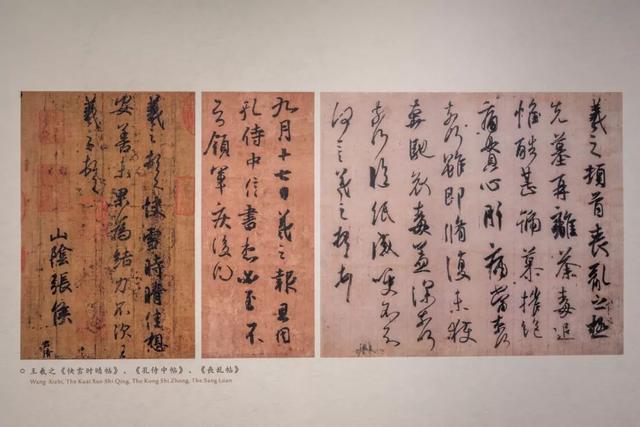 羲之頓首快雪時晴佳想
安善未果為結力不次王
羲之頓首
山陰張侯
九月十七日羲之報且因
孔侍中信書想必至不
知領軍疾後問
羲之頓首喪亂之極
先墓再離荼毒追
惟酷甚號慕摧絶
痛貫心肝痛當奈何
奈何雖即脩復未獲
奔馳哀毒益深奈何
奈何臨紙感哽不知
何言羲之頓首頓首
王羲之《快雪时晴帖》、《孔侍中帖》、《丧乱帖》
Wang Xizhi, The Kuai Xue Shi Qing, The Kong Shi Zhong, The Sang Luan